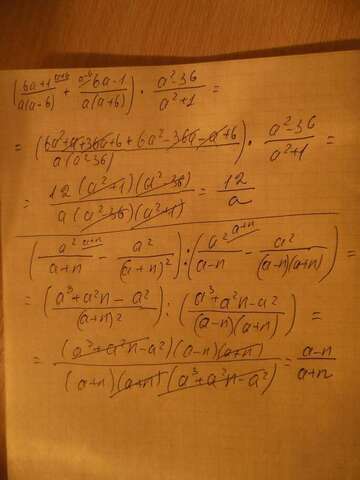 (6a+1/a(a-6) ^a+6 + ^a-6 6a-1/a(a+6)) · a²-36/a²+1 =
= (6a²+a+36a+6+6a²-36a-a+6/a(a²-36)) · a²-36/a²+1 =
= 12(a²+1)(a²-36)/a(a²-36)(a²+1) = 12/a
(a² ^a+n/a+n - a²/(a+n)²) : (a² ^a+n/a-n - a²/(a-n)(a+n)) =
= (a³+a²n-a²/(a+n)²) : (a³+a²n-a²/(a-n)(a+n)) =
= (a³+a²n-a²)(a-n)(a+n)/(a+n)(a+n)(a³+a²n-a²) = a-n/a+n